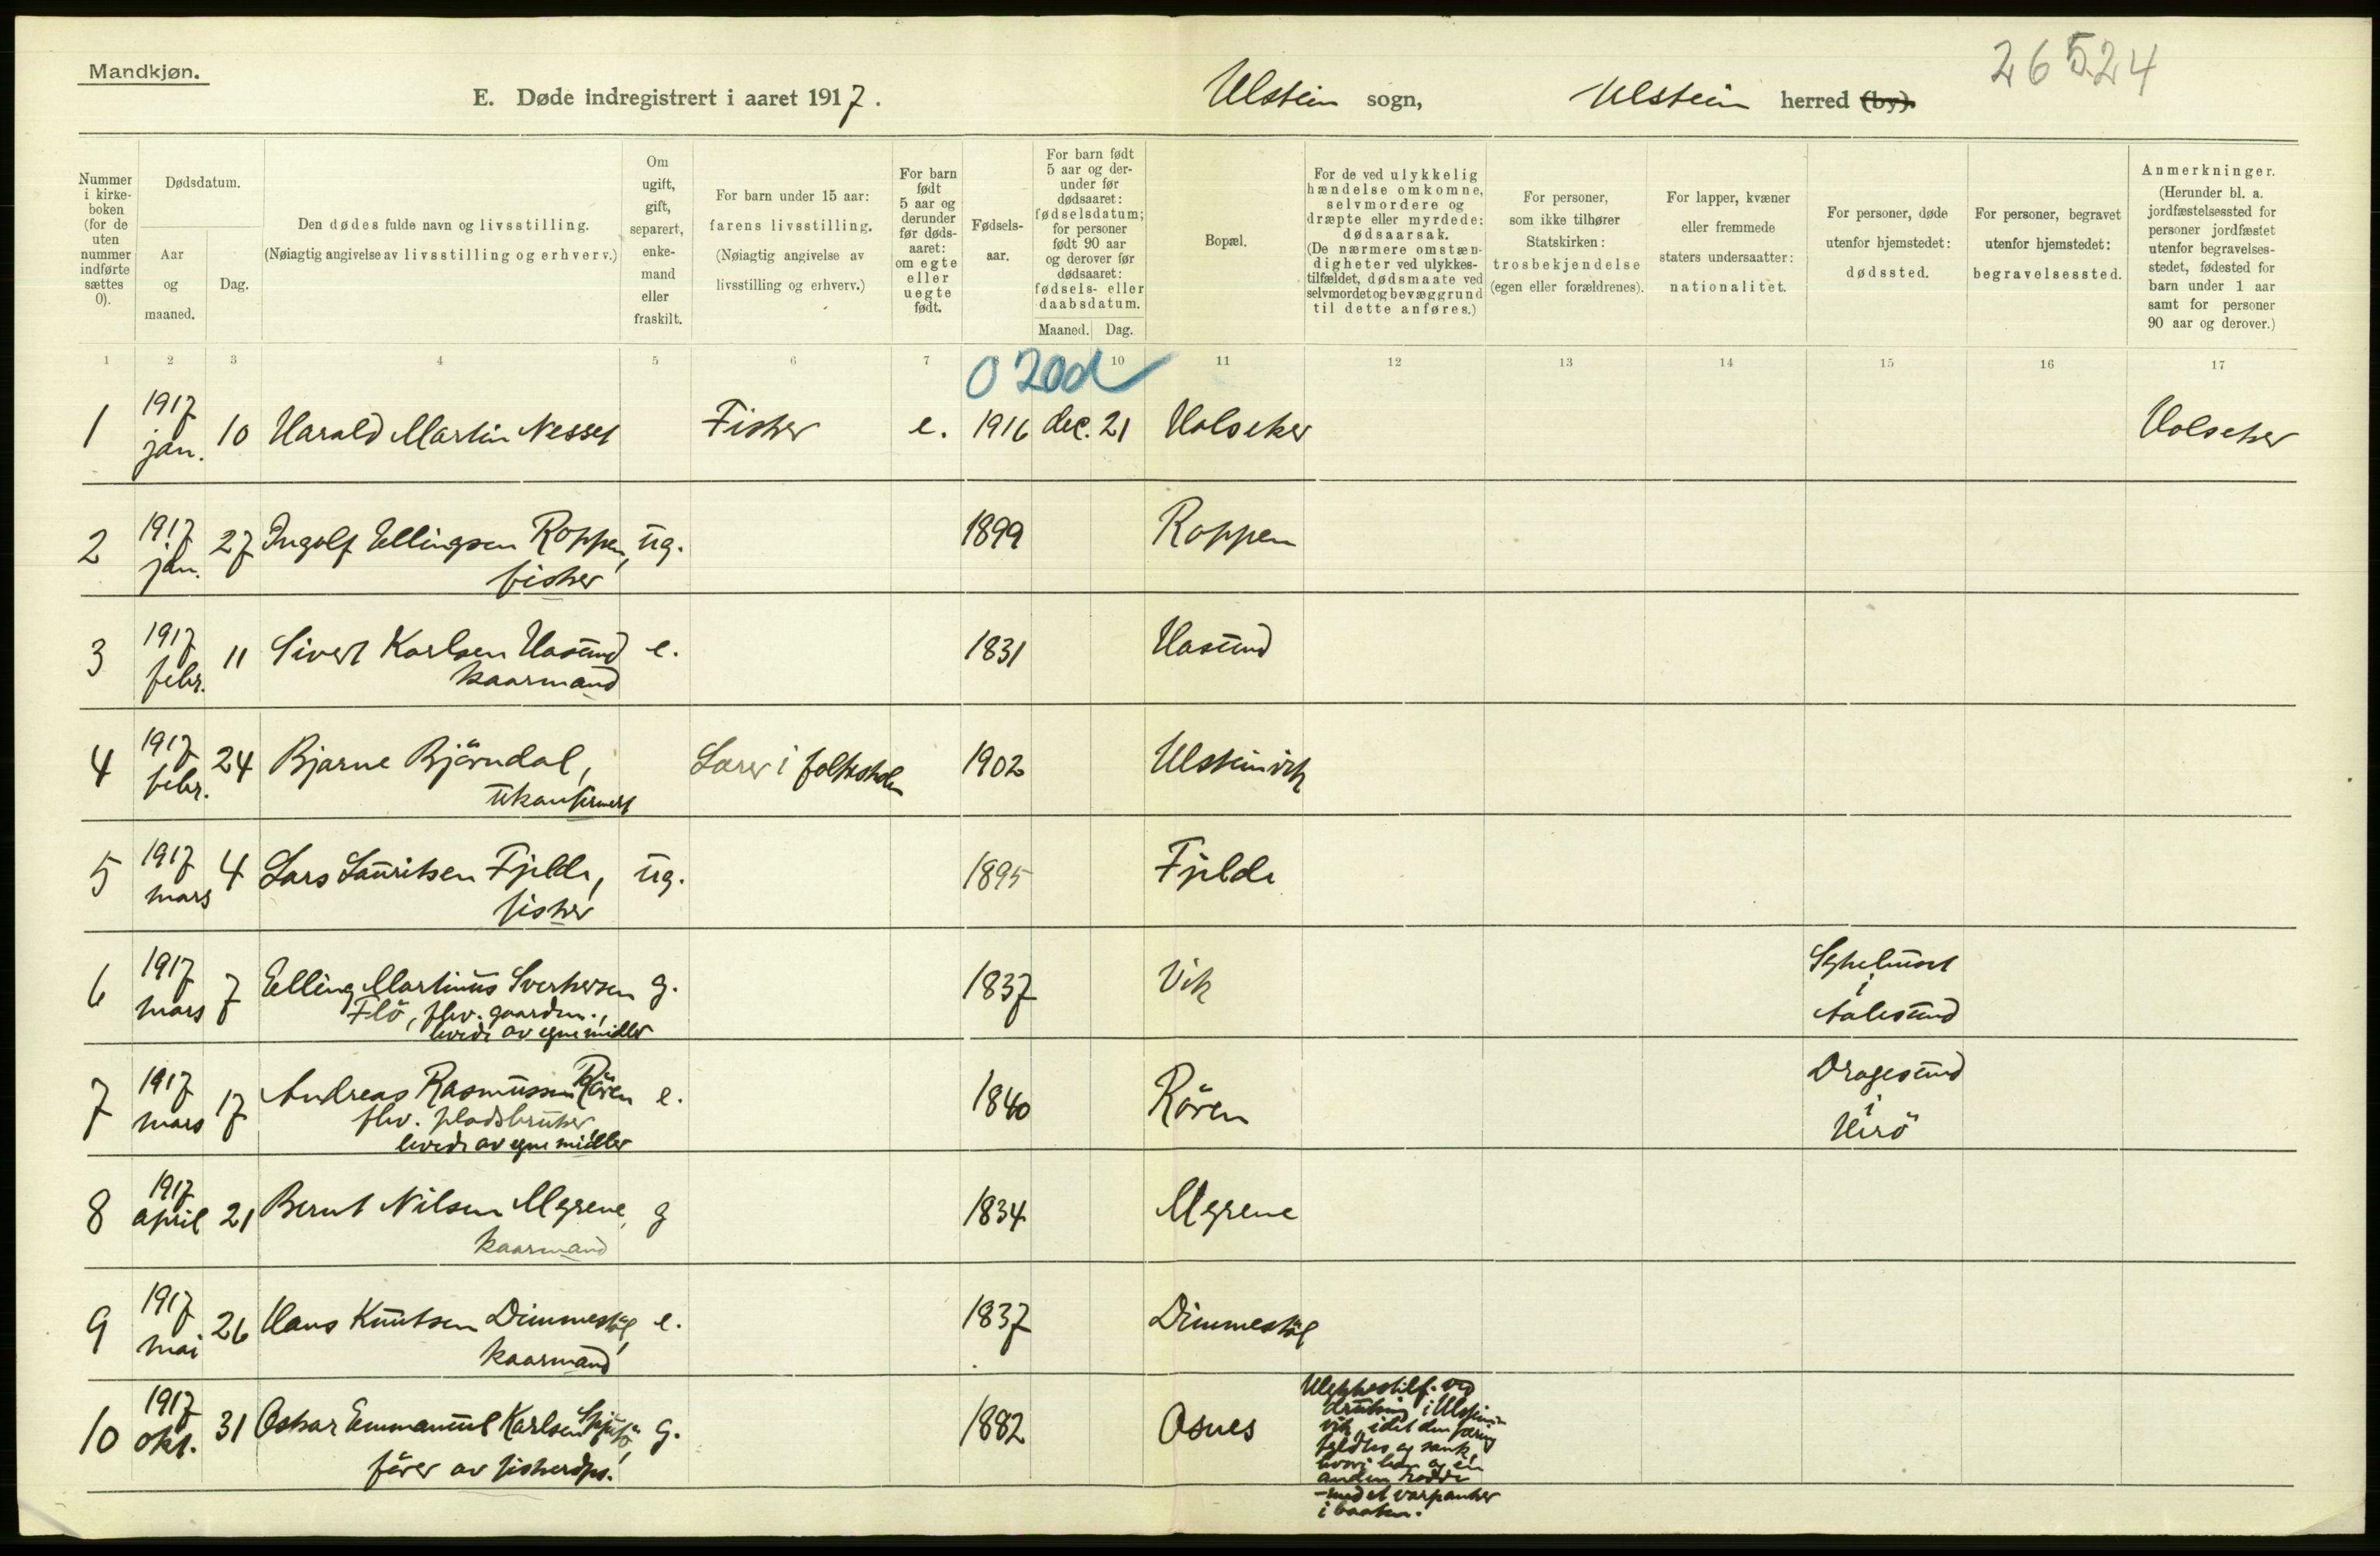 Mandkjøn.
26524
E. Døde indregistrert i aaret 1917. Ulstein sogn, Ulstein herred (by).
Nummer i kirkeboken (for de uten nummer indførte sættes 0).
Dødsdatum.
Aar og maaned.
Dag.
Den dødes fulde navn og livsstilling. (Nøiagtig angivelse av livsstilling og erhverv.)
Om ugift, gift, separert, enkemand eller fraskilt.
For barn under 15 aar: farens livsstilling. (Nøiagtig angivelse av livsstilling og erhverv.)
For barn født 5 aar og derunder før dødsaaret: om egte eller uegte født.
Fødselsaar.
For barn født 5 aar og derunder før dødsaaret: fødselsdatum; for personer født 90 aar og derover før dødsaaret: fødsels- eller daabsdatum.
Maaned. Dag.
Bopæl.
For de ved ulykkelig hændelse omkomne, selvmordere og dræpte eller myrdede: dødsaarsak. (De nærmere omstændigheter ved ulykkestilfældet, dødsmaate ved selvmordet og bevæggrund til dette anføres.)
For personer, som ikke tilhører Statskirken: trosbekjendelse (egen eller forældrenes).
For lapper, kvæner eller fremmede staters undersaatter: nationalitet.
For personer, døde utenfor hjemstedet: dødssted.
For personer, begravet utenfor hjemstedet: begravelsessted.
Anmerkninger. (Herunder bl. a. jordfæstelsessted for personer jordfæstet utenfor begravelsesstedet, fødested for barn under 1 aar samt for personer 90 aar og derover.)
1 2 3 4 5 6 7 8 9 10 11 12 13 14 15 16 17
020d
1 1917 jan. 10 Harald Martin Nesset Fisker e. 1916 dec. 21 Holseker Holseker
2 1917 jan. 27 Ingolf Ellingsen Roppen, ug. 1899 Roppen
fisker
3 1917 febr. 11 Sivert Karlsen Hasund e. 1831 Hasund
kaarmand
4 1917 febr. 24 Bjarne Björndal, Lærer i folkeskolen 1902 Ulsteinvik
ukonfirmert
5 1917 mars 4 Lars Lauritsen Fjelde, ug. 1895 Fjelde
fisker
6 1917 mars 7 Elling Martinus Sverkersen g. 1837 Vik Sykehuset i Aalesund
Flö, fhv. gaardm.,
levede av egne midler
7 1917 mars 17 Andreas Rasmussen Rören e. 1840 Rören Dragesund i Herö
fhv. pladsbruker
levede av egne midler
8 1917 april 21 Bernt Nilsen Myrene, g 1834 Myrene
kaarmand
9 1917 mai 26 Hans Knutsen Dimmestöl, e. 1837 Dimmestöl
kaarmand
10 1917 okt. 31 Oskar Emmanuel Karlsen g. 1882 Osnes
förer av fiskedps.
Ulykkestilf. ved
drukning i Ulstein
vik, idet den færing
fyldtes og sank
hvori han og én
anden rodde
- med et varpanker
i baaten.